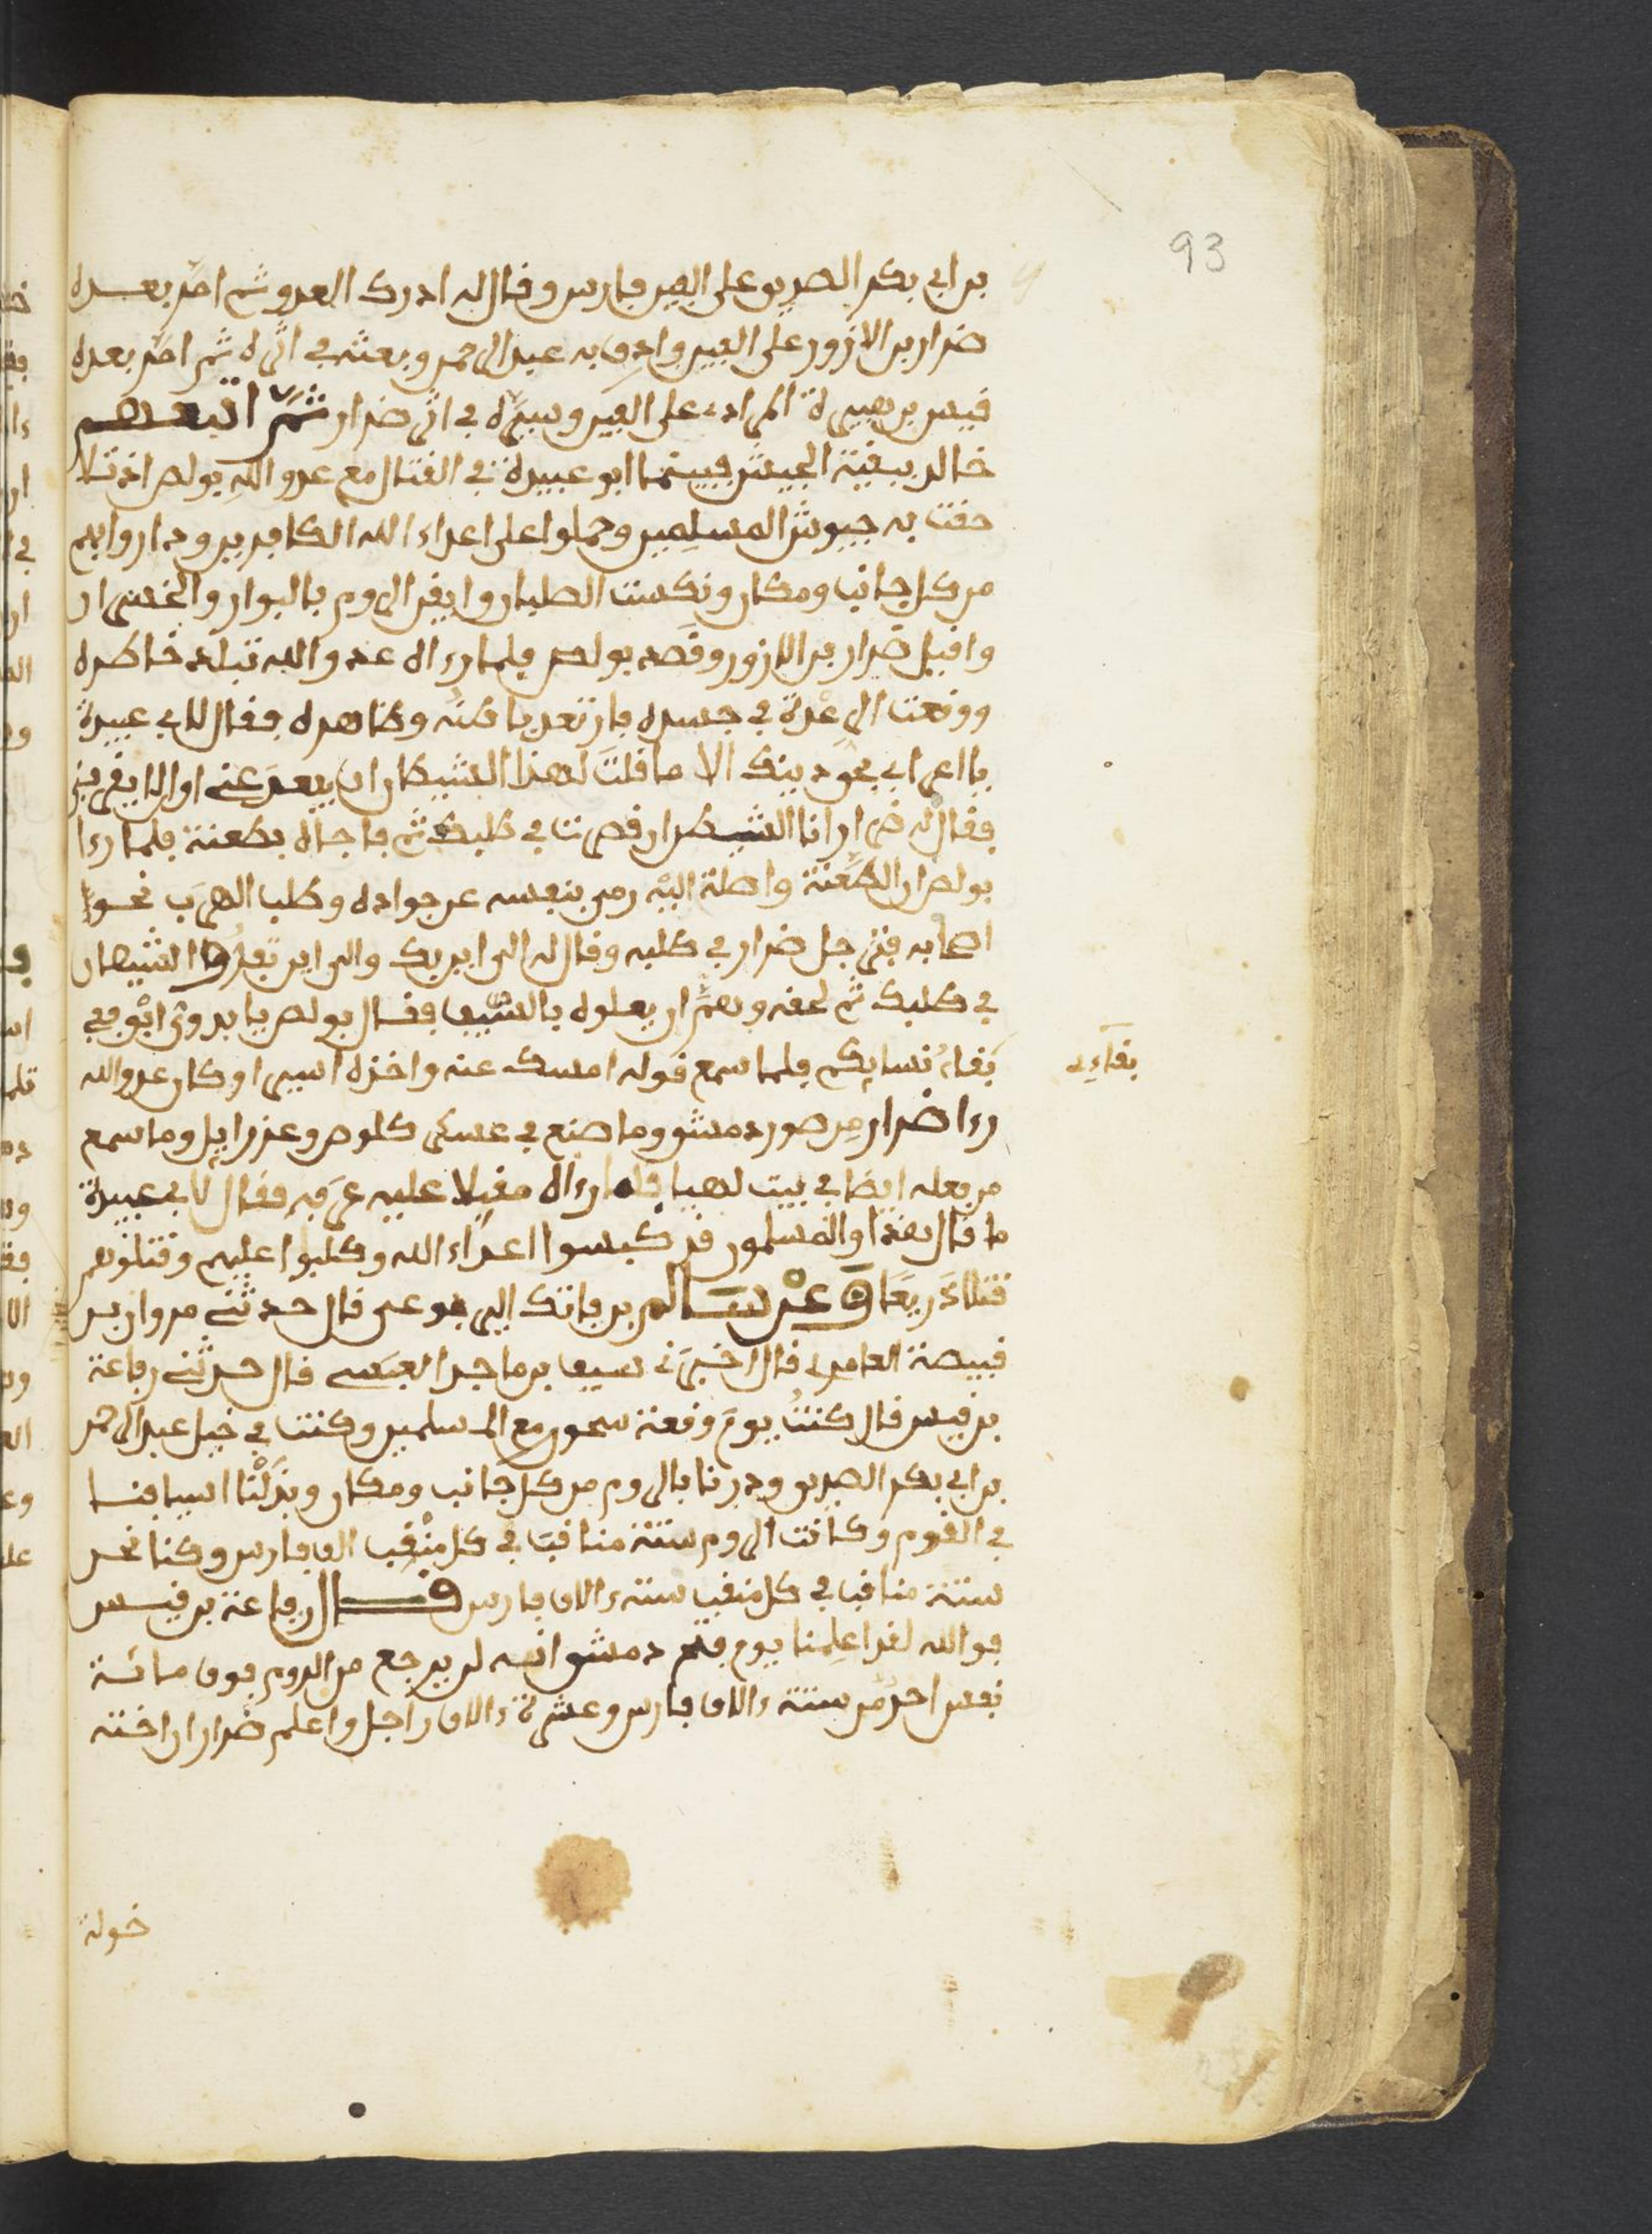 93
بن ابي بكر الصديق على الفين فارس وقال له ادرك العدو ثم امر بعده
ضرار بن الازور على الفين واردف به عبد الرحمن وبعثه في اثره ثم امر بعده
قيس بن هبيرة المرادي على الفين وسيره في اثر ضرار ثم اتبعهم
خالد ببقية الجيش فبينما ابو عبيدة في القتال مع عدو الله بولص اذ تلا
حقت به جيوش المسلمين وحملوا على اعداء الله الكافرين وداروا بهم
من كل جانب ومكان ونكست الصلبان وايقن الروم بالبوار والخسران
واقبل ضرار بن الازور وقصد بولص فلما رءاه عدو الله تبلد خاطره
ووقعت الرعدة في جسده فارتعد باطنه وظاهره فقال لابي عبيدة
يا اعرابي بحق دينك الا ما قلت لهذا الشيطان ان يبعد عنى اوالا يقربني
فقال له ضرار انا الشيطان ان قصرت في طلبك ثم فاجاه بطعنة فلما رءا
بولص ان الطعنة واصلة اليه رمى بنفسه عن جواده وطلب الهرب نحو
اصحابه فترجل ضرار في طلبه وقال له الى اين بك والى اين تفر والشيطان
في طلبك ثم لحقه وهم ان يعلوه بالسيف فقال بولص يا بدوي ابق ففي
بقاء نسايكم فلما سمع قوله امسك عنه واخذه اسيرا وكان عدو الله
بقاءى
رءا ضرار من صور دمشق وما صنع في عسكر كلوص وعزرايل وما سمع
من فعله ايضا في بيت لهيا فلما رءاه مقبلا عليه عرفه فقال لابي عبيدة
ما قال هذا والمسلمون قد كبسوا اعداء الله وطلبوا عليهم وقتلوهم
قتلا ذريعا ق عن سالم بن فاتك اليربوعى قال حدثنى مروان بن
قبيصة العامرى قال اخبرنى سيف بن ماجد العبسى قال حدثنى رفاعة
بن قيس قال كنت يوم وقعة سحور مع المسلمين وكنت في خيل عبد الرحمن
بن ابي بكر الصديق ودرنا بالروم من كل جانب ومكان وبذلنا اسيافنا
في القوم وكانت الروم ستة مناقب في كل منقب الف فارس وكنا نحن
ستة مناقب في كل منقب ستة ءالاف فارس قال رفاعة بن قيس
فوالله لقد اعلمنا يوم فتح دمشق انه لم يرجع من الروم فوق مائة
نفس احد من ستة ءالاف فارس وعشرة ءالاف راجل واعلم ضرار ان اخته
خولة